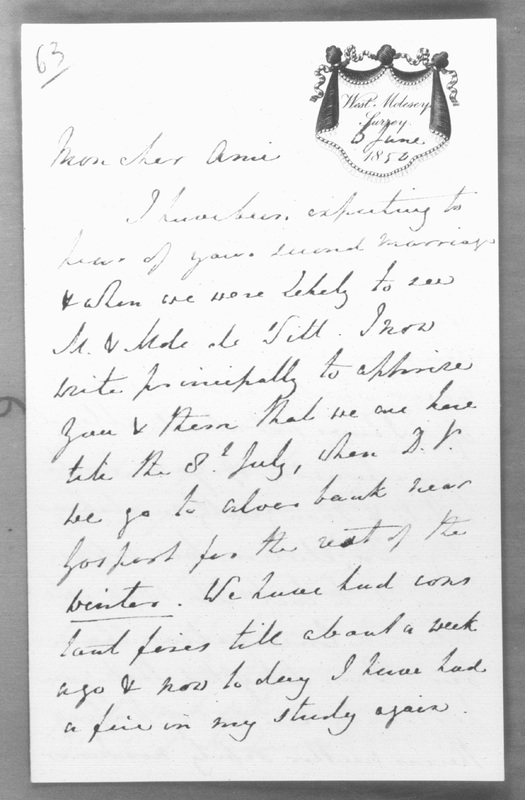 63
West Molesey
Surrey
5 June
1852
Mon cher Ami
I have been expecting to
hear of your second marriage
& when we were likely to see
M. & Mde de Witt. I now
write principally to apprise
you & them that we are here
till the 8th July, when D.V.
we go to Alverbank near
Gosport for the rest of the
winter. We have had cons
tant fires till about a week
ago & now to day I have had
a fire in my study again.